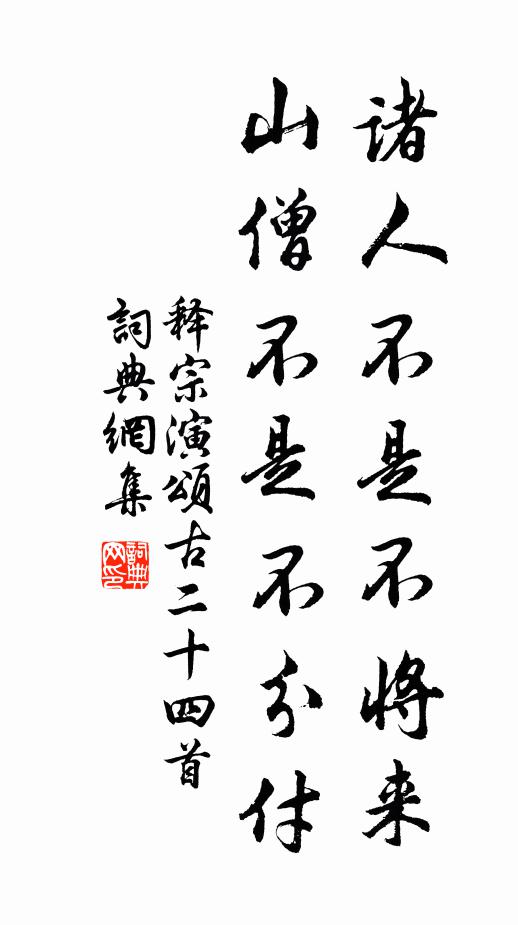 诸人不是不将来
山僧不是不分付
释宗演頌古二十四首
詞典網集
詞典网印